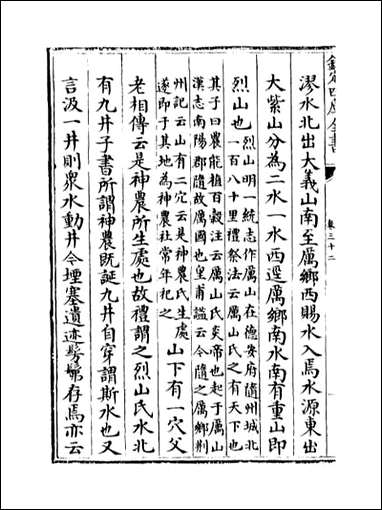 欽定四庫全書
卷三十二
漻水北出大義山南至厲鄉西賜水入焉水源東出
大紫山分為二水一水西逕厲鄉南水南有重山即
烈山也
烈山明一統志作厲山在德安府隨州城北
一百八十里禮祭法云厲山氏之有天下也
其子曰農能植百穀注云厲山氏炎帝也起于厲山
漢志南陽郡隨故厲國也皇甫謐云今隨之厲鄉荆
州記云山有二穴云是神農氏生處
遂即于其地為神農社常年祀之
山下有一穴父
老相傳云是神農所生處也故禮謂之烈山氏水北
有九井子書所謂神農既誕九井自穿謂斯水也又
言汲一井則衆水動井今堙塞遺迹髣髴存焉亦云